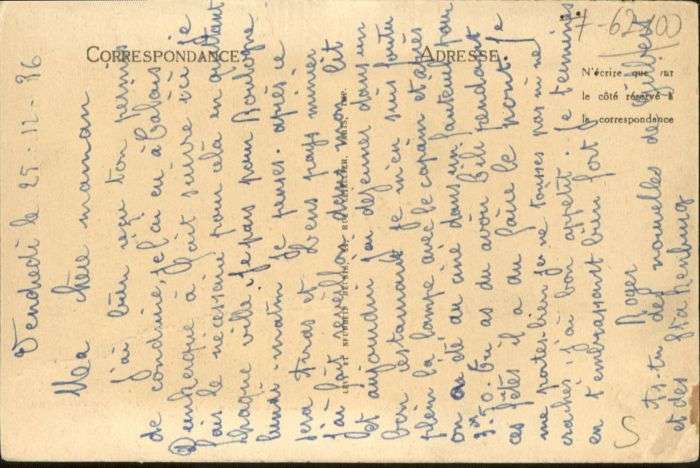 CORRESPONDANCE
ADRESSE
N'écrire que sur
le côté réservé à
la correspondance
Vendredi le 25-12-36
Ma chère maman
J'ai bien reçu ton permis
de conduire, je l'ai eu à Calais.
Dunkerque à fait suivre vu je
fais le nécessaire pour cela en quittant
chaque ville. Je pars pour Boulogne
lundi matin je pense. après ce
sera Arras et Lens pays minier
J'ai fait réveillon dans mon lit
et aujourd'hui j'ai déjeuner dans un
bon restaurant je m'en suis foutu
plein la lampe avec le copain et après
on été au ciné dans un fauteuil pour
Tu as du avoir Bili pendant
ces fêtes il a du faire le pont. Je
me portes bien je ne tousses pas ni ne
craches, j'ai bon appétit. Je termine
en t'embrassant bien fort
Roger
As-tu des nouvelles de
et des
S